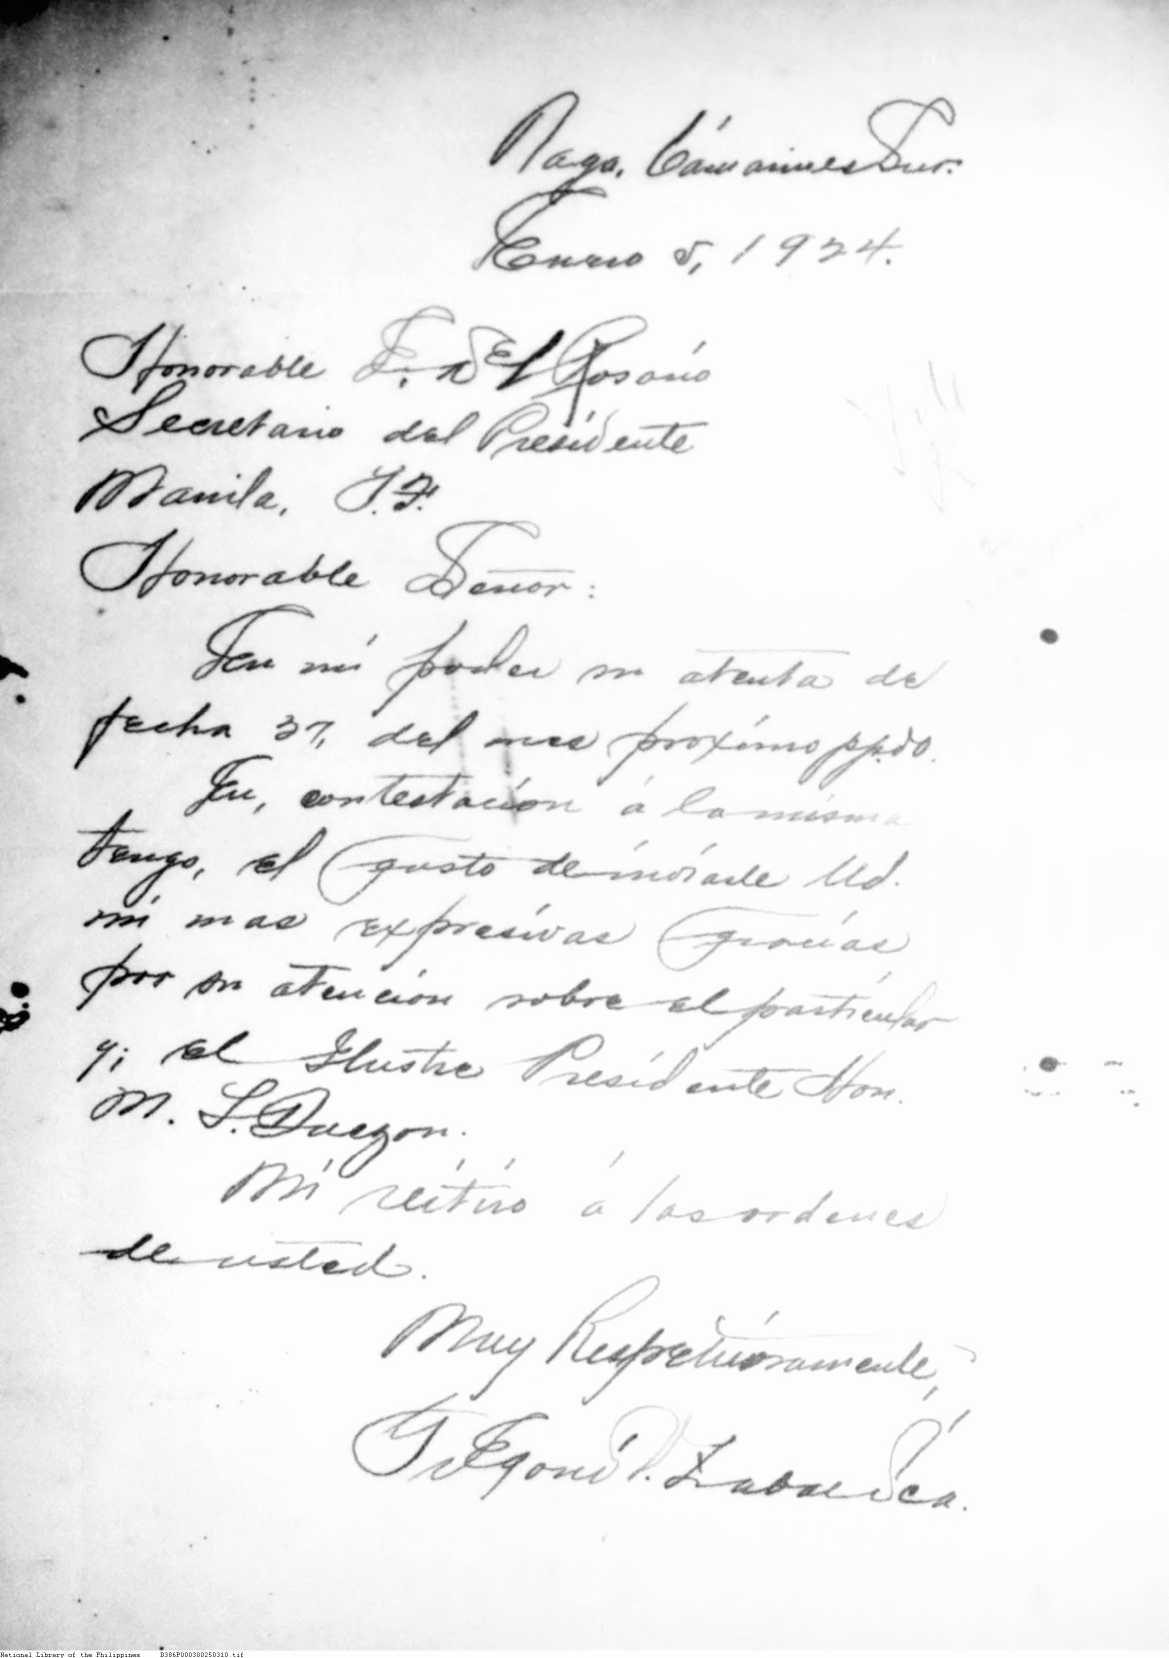 Naga, Camarines Sur.
Enero 5, 1924.
Honorable F. del Rosario
Secretario del Presidente
Manila, I. F.
Honorable Señor:
En mi poder su atenta de
fecha 27, del mes próximo ppdo.
En, contestación á la misma
tengo, el gusto de Ud.
mi mas expresivas gracias
por su atención sobre el particular
y; el Ilustre Presidente Hon.
M. L. Quezon.
Mi reitiro á las ordenes
de usted.
Muy Respetuosamente,
National Library of the Philippines B386P000300250310.tif